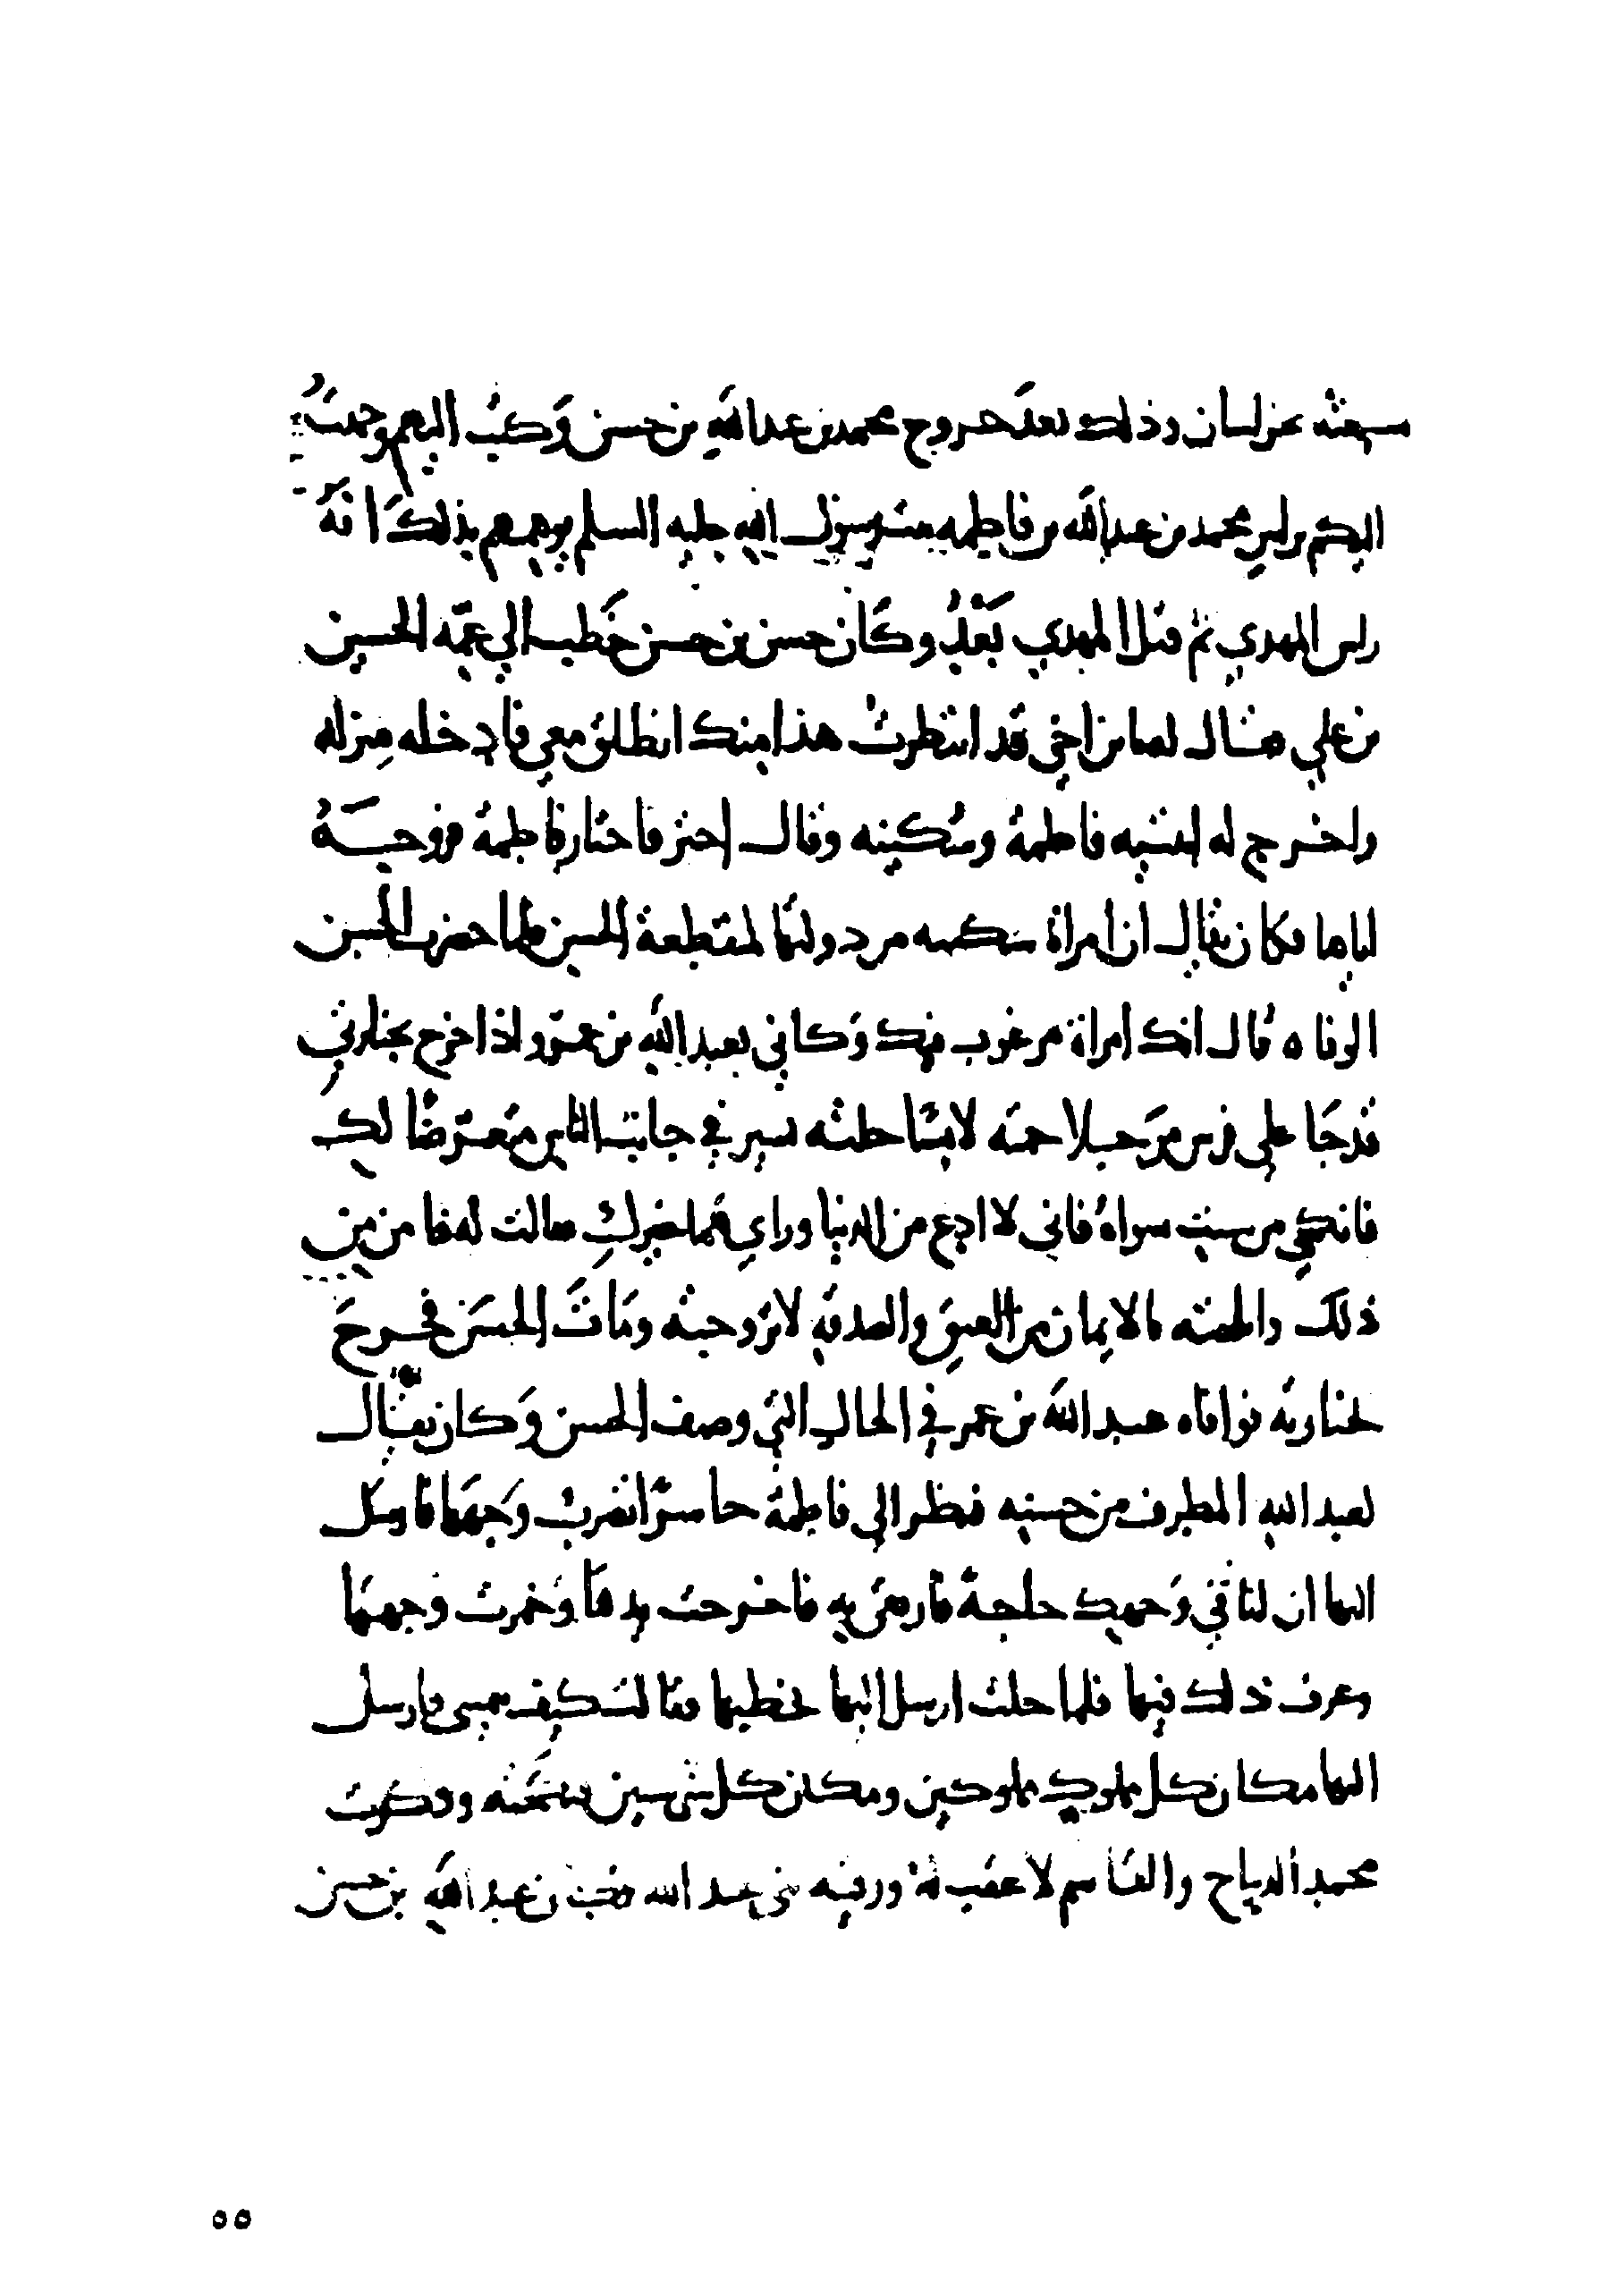 سعته بخراسان وذلك بعد خروج محمد بن عبد الله بن حسن وكتب اليهم وجهت
اليكم براس محمد بن عبد الله بن فاطمه بنت رسول الله عليه السلم يوهمهم بذلك انه
راس المهدي ثم قتل المهدي بعد وكان حسن بن حسن خطب الي عمه الحسين
بن علي فقال له يا بن اخي قد انتظرت هذا منك انطلق معي فادخله منزله
واخرج له ابنتيه فاطمة وسكينه وقال اختر فاختار فاطمة فزوجه
اياها فكان يقال ان امراة سكينه مردولتها لمنقطعة الحسن فلما حضرت الحسن
الوفاه قال انك امراة مرغوب فيك وكاني بعبد الله بن عمرو اذا خرج بجنازتي
قد جا علي فرس مرجلا جمته لابسا حلته يسير في جانب الناس متعرضا لك
فانكحي من شيت سواه فاني لا ادع من الدنيا وراي هما غيرك فقالت له فامن من
ذلك واثلجته بالايمان من العتق والصدقه لا تزوجته ومات الحسن فخرج
بجنازته فوافاه عبد الله بن عمر في الحال التي وصف الحسن وكان يقال
لعبد الله المطرف من حسنه فنظر الي فاطمة حاسرا تضرب وجهها فارسل
اليها ان لنا في وجهك حاجة فارفقي به فاخرجت يدها وخمرت وجهها
وعرف ذلك فيها فلما حلت ارسل اليها يخطبها فقالت كيف بيميني فارسل
اليها مكان كل مملوك مملوكين ومكان كل شي شيين فنكحته وولدت
محمد الديباج والقاسم لا عقب له ورقيه بني عبد الله فكان عبد الله بن حسن
٥٥